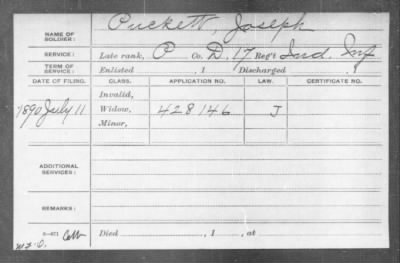 NAME OF SOLDIER: Puckett, Joseph
SERVICE: Late rank, P Co. D, 17 Reg't Ind. Inf
TERM OF SERVICE: Enlisted , 1 Discharged , 1
DATE OF FILING. CLASS. APPLICATION NO. LAW. CERTIFICATE NO.
Invalid,
1890 July 11 Widow, 428146 J
Minor,
ADDITIONAL SERVICES:
REMARKS:
Died , 1 , at